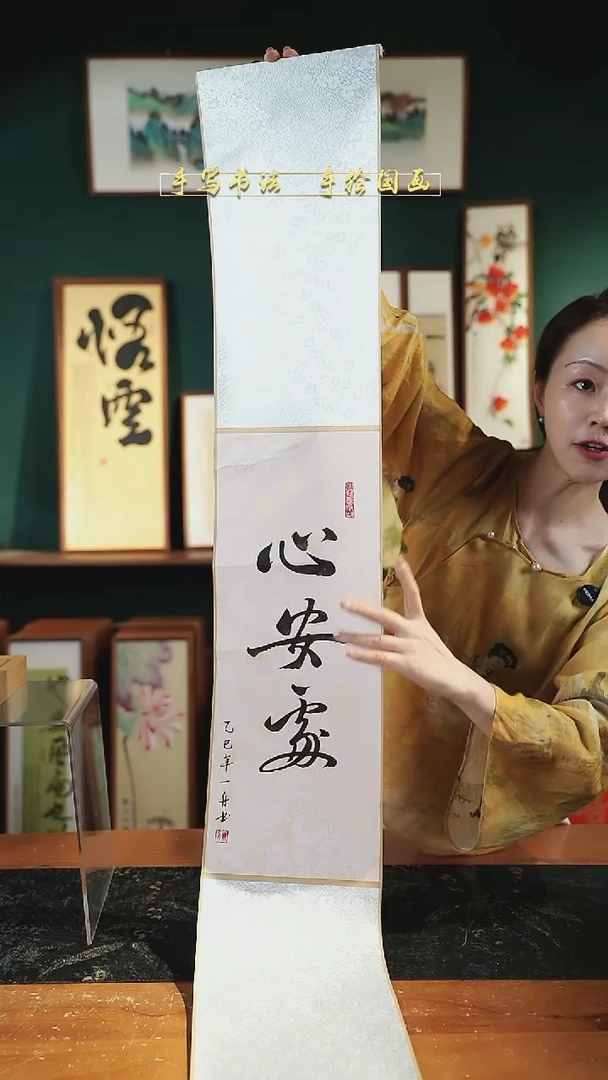 手写书法 手绘国画
悟空
心安处
乙巳年一舟书